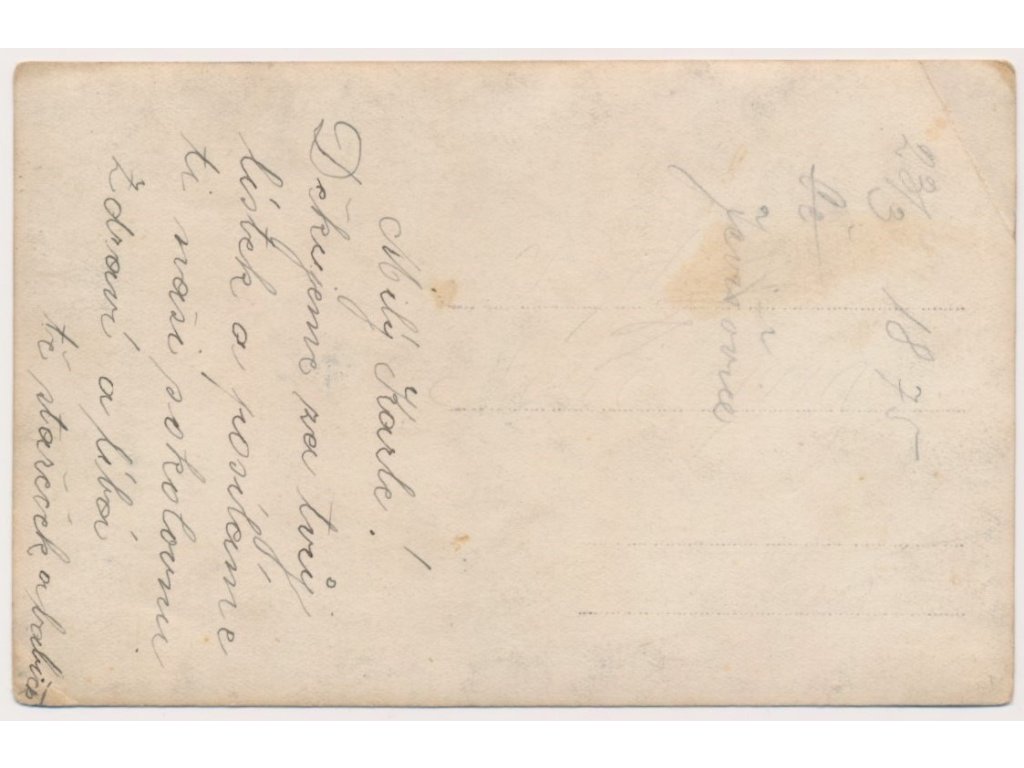 Milý Karle!
Děkujeme za tvůj
lístek a posíláme
ti naši sokolovnu
Zdraví a líbá
tě stařeček a babička
23/3 1875